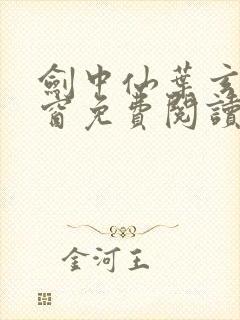 劍中仙葉玄
窗免費閱讀
金河王